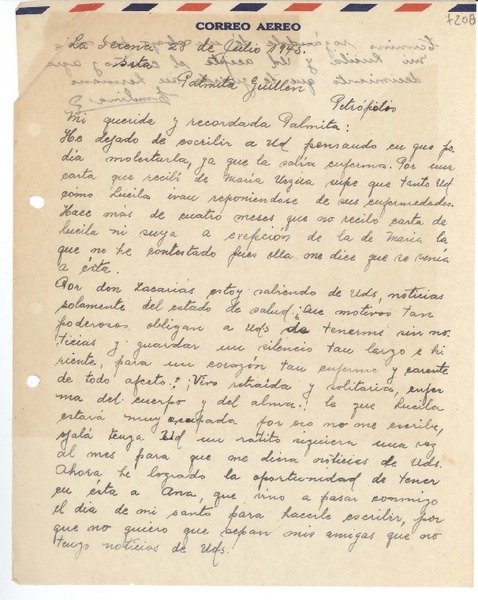 CORREO AEREO
7208
La Serena, 28 de Julio 1943.
Srta
Palmita Guillen
Petrópolis
Mi querida y recordada Palmita:
He dejado de escribir a Ud pensando en que po
día molestarla, ya que la sabía enferma. Por una
carta que recibí de María Urzúa supe que tanto Ud
como Lucila ivan reponiendose de sus enfermedades.
Hace más de cuatro meses que no recibo carta de
Lucila ni suya a evepción de la de María la
que no he contestado pues ella me dice que se venía
a ésta.
Por don Zacarías estoy sabiendo de Uds, noticias
solamente del estado de salud ¿Que motivos tan
poderosos obligan a Uds de tenerme sin no
ticias y guardar un silencio tan largo e hi
riente, para un corazón tan enfermo y carente
de todo afecto? ¡Vivo retraída y solitaria, enfer
ma del cuerpo y del alma! lo que Lucila
estará muy ocupada por eso no me escribe,
ojalá tenga Ud un ratito siquiera una vez
al mes para que me dina noticias de Uds.
Ahora he logrado la oportunidad de tener
en ésta a Ana, que vino a pasar conmigo
el dia de mi santo para hacerle escribir, por
que no quiero que sepan mis amigas que no
tengo noticias de Uds.